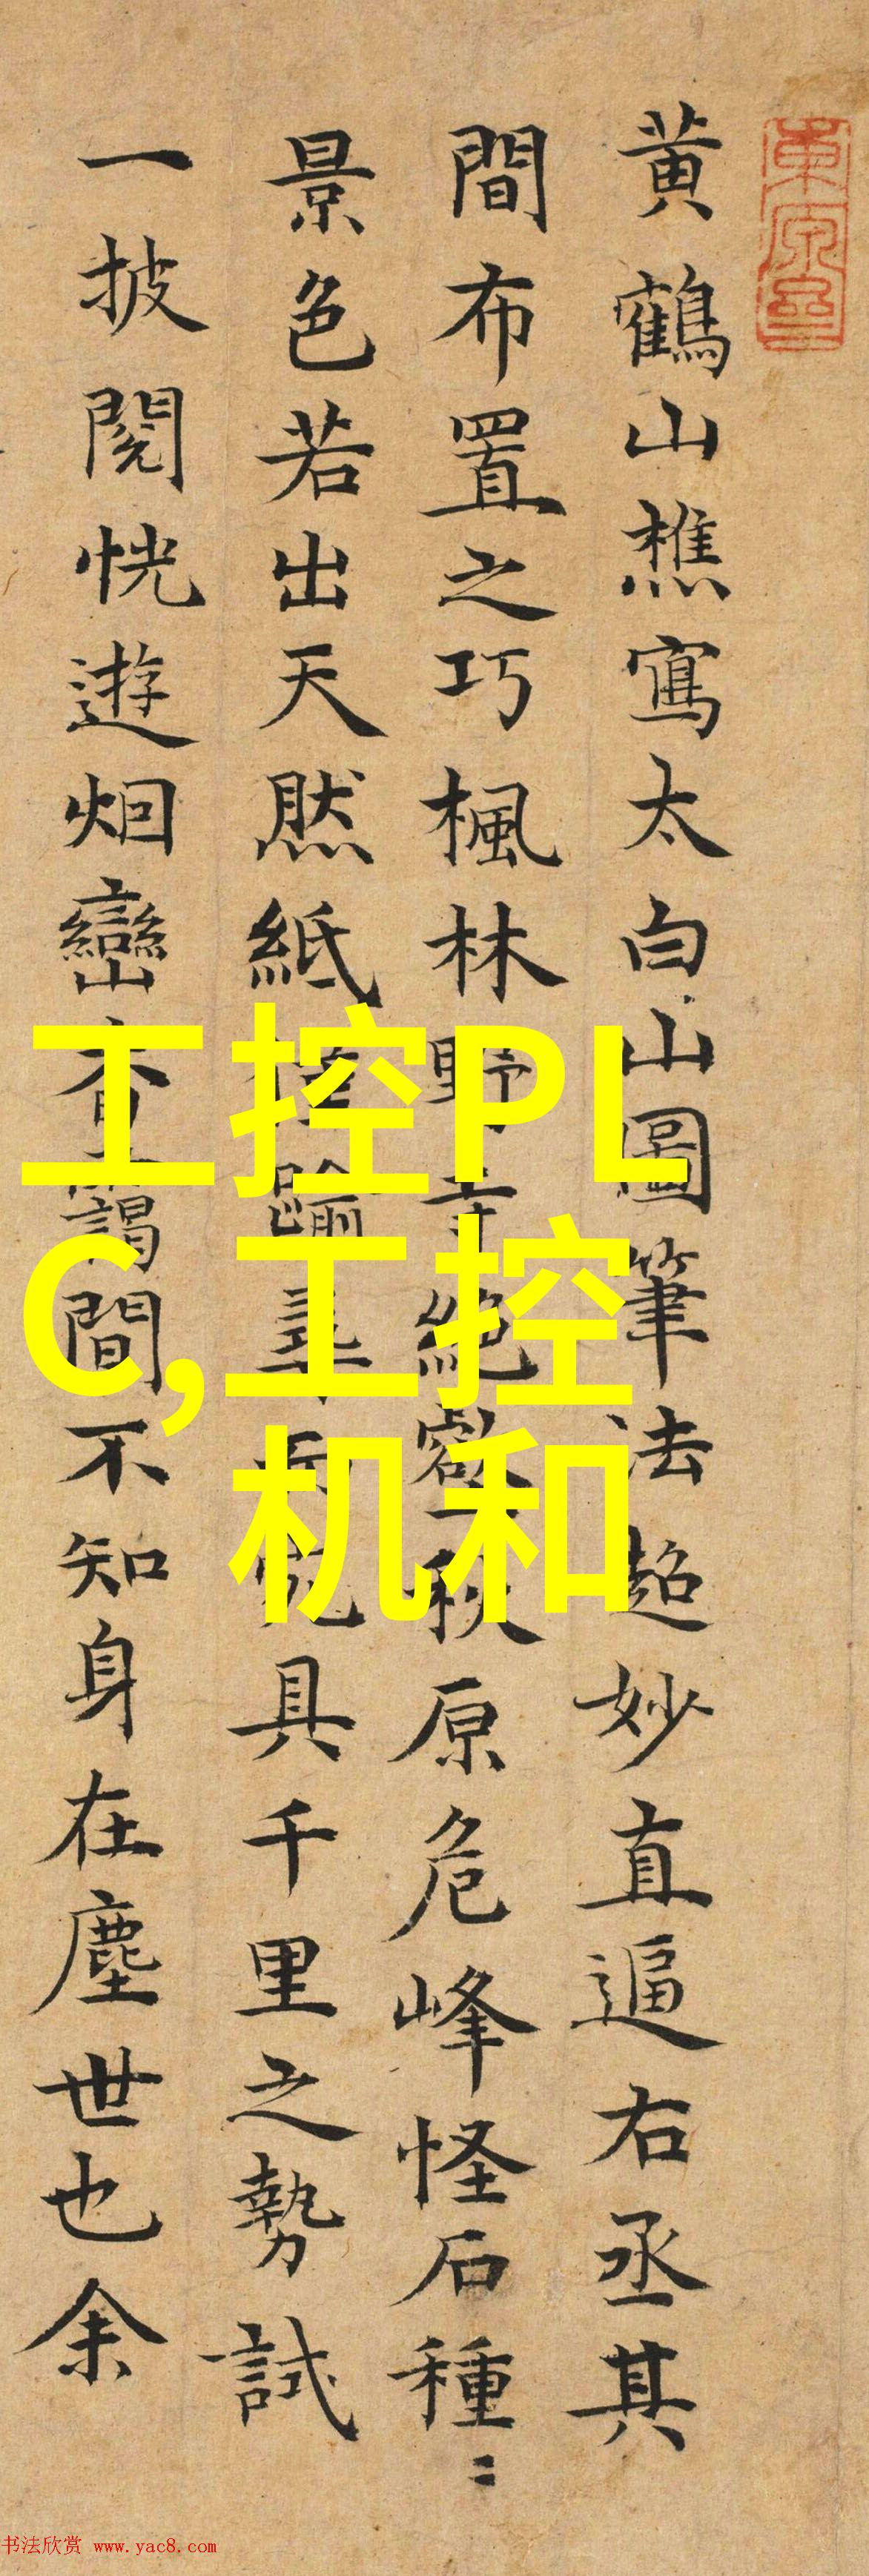 黄鶴山樵寫太白山圖筆法超妙直逼右丞其
間布置之巧楓林野寺絕𪩘秋原危峰怪石種〻
景色若出天然紙僅踰尋而宛具千里之勢試
一披閱恍遊烟巒杳靄間不知身在塵世也余
工控PL
C,工控
机和
书法欣赏 www.yac8.com